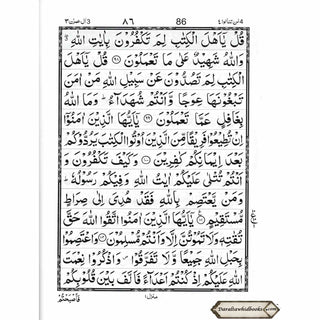 لن تنالوا ٤ 86 ٨٦ اٰل عمرٰن ٣
قُلْ يٰٓاَهْلَ الْكِتٰبِ لِمَ تَكْفُرُوْنَ بِاٰيٰتِ اللّٰهِ ۖ
وَاللّٰهُ شَهِيْدٌ عَلٰى مَا تَعْمَلُوْنَ ﴿٩٨﴾ قُلْ يٰٓاَهْلَ
الْكِتٰبِ لِمَ تَصُدُّوْنَ عَنْ سَبِيْلِ اللّٰهِ مَنْ اٰمَنَ
تَبْغُوْنَهَا عِوَجًا وَّاَنْتُمْ شُهَدَآءُ ؕ وَمَا اللّٰهُ
بِغَافِلٍ عَمَّا تَعْمَلُوْنَ ﴿٩٩﴾ يٰٓاَيُّهَا الَّذِيْنَ اٰمَنُوْٓا
اِنْ تُطِيْعُوْا فَرِيْقًا مِّنَ الَّذِيْنَ اُوْتُوا الْكِتٰبَ يَرُدُّوْكُمْ
بَعْدَ اِيْمَانِكُمْ كٰفِرِيْنَ ﴿١٠٠﴾ وَكَيْفَ تَكْفُرُوْنَ وَ
اَنْتُمْ تُتْلٰى عَلَيْكُمْ اٰيٰتُ اللّٰهِ وَفِيْكُمْ رَسُوْلُهٗ ؕ
وَمَنْ يَّعْتَصِمْ بِاللّٰهِ فَقَدْ هُدِيَ اِلٰى صِرَاطٍ
مُّسْتَقِيْمٍ ﴿١٠١﴾ يٰٓاَيُّهَا الَّذِيْنَ اٰمَنُوا اتَّقُوا اللّٰهَ حَقَّ
تُقٰتِهٖ وَلَا تَمُوْتُنَّ اِلَّا وَاَنْتُمْ مُّسْلِمُوْنَ ﴿١٠٢﴾ وَاعْتَصِمُوْا
بِحَبْلِ اللّٰهِ جَمِيْعًا وَّلَا تَفَرَّقُوْا ۪ وَاذْكُرُوْا نِعْمَتَ
اللّٰهِ عَلَيْكُمْ اِذْ كُنْتُمْ اَعْدَآءً فَاَلَّفَ بَيْنَ قُلُوْبِكُمْ
منزل ١ فَاَصْبَحْتُمْ
Darultawhidbooks.com